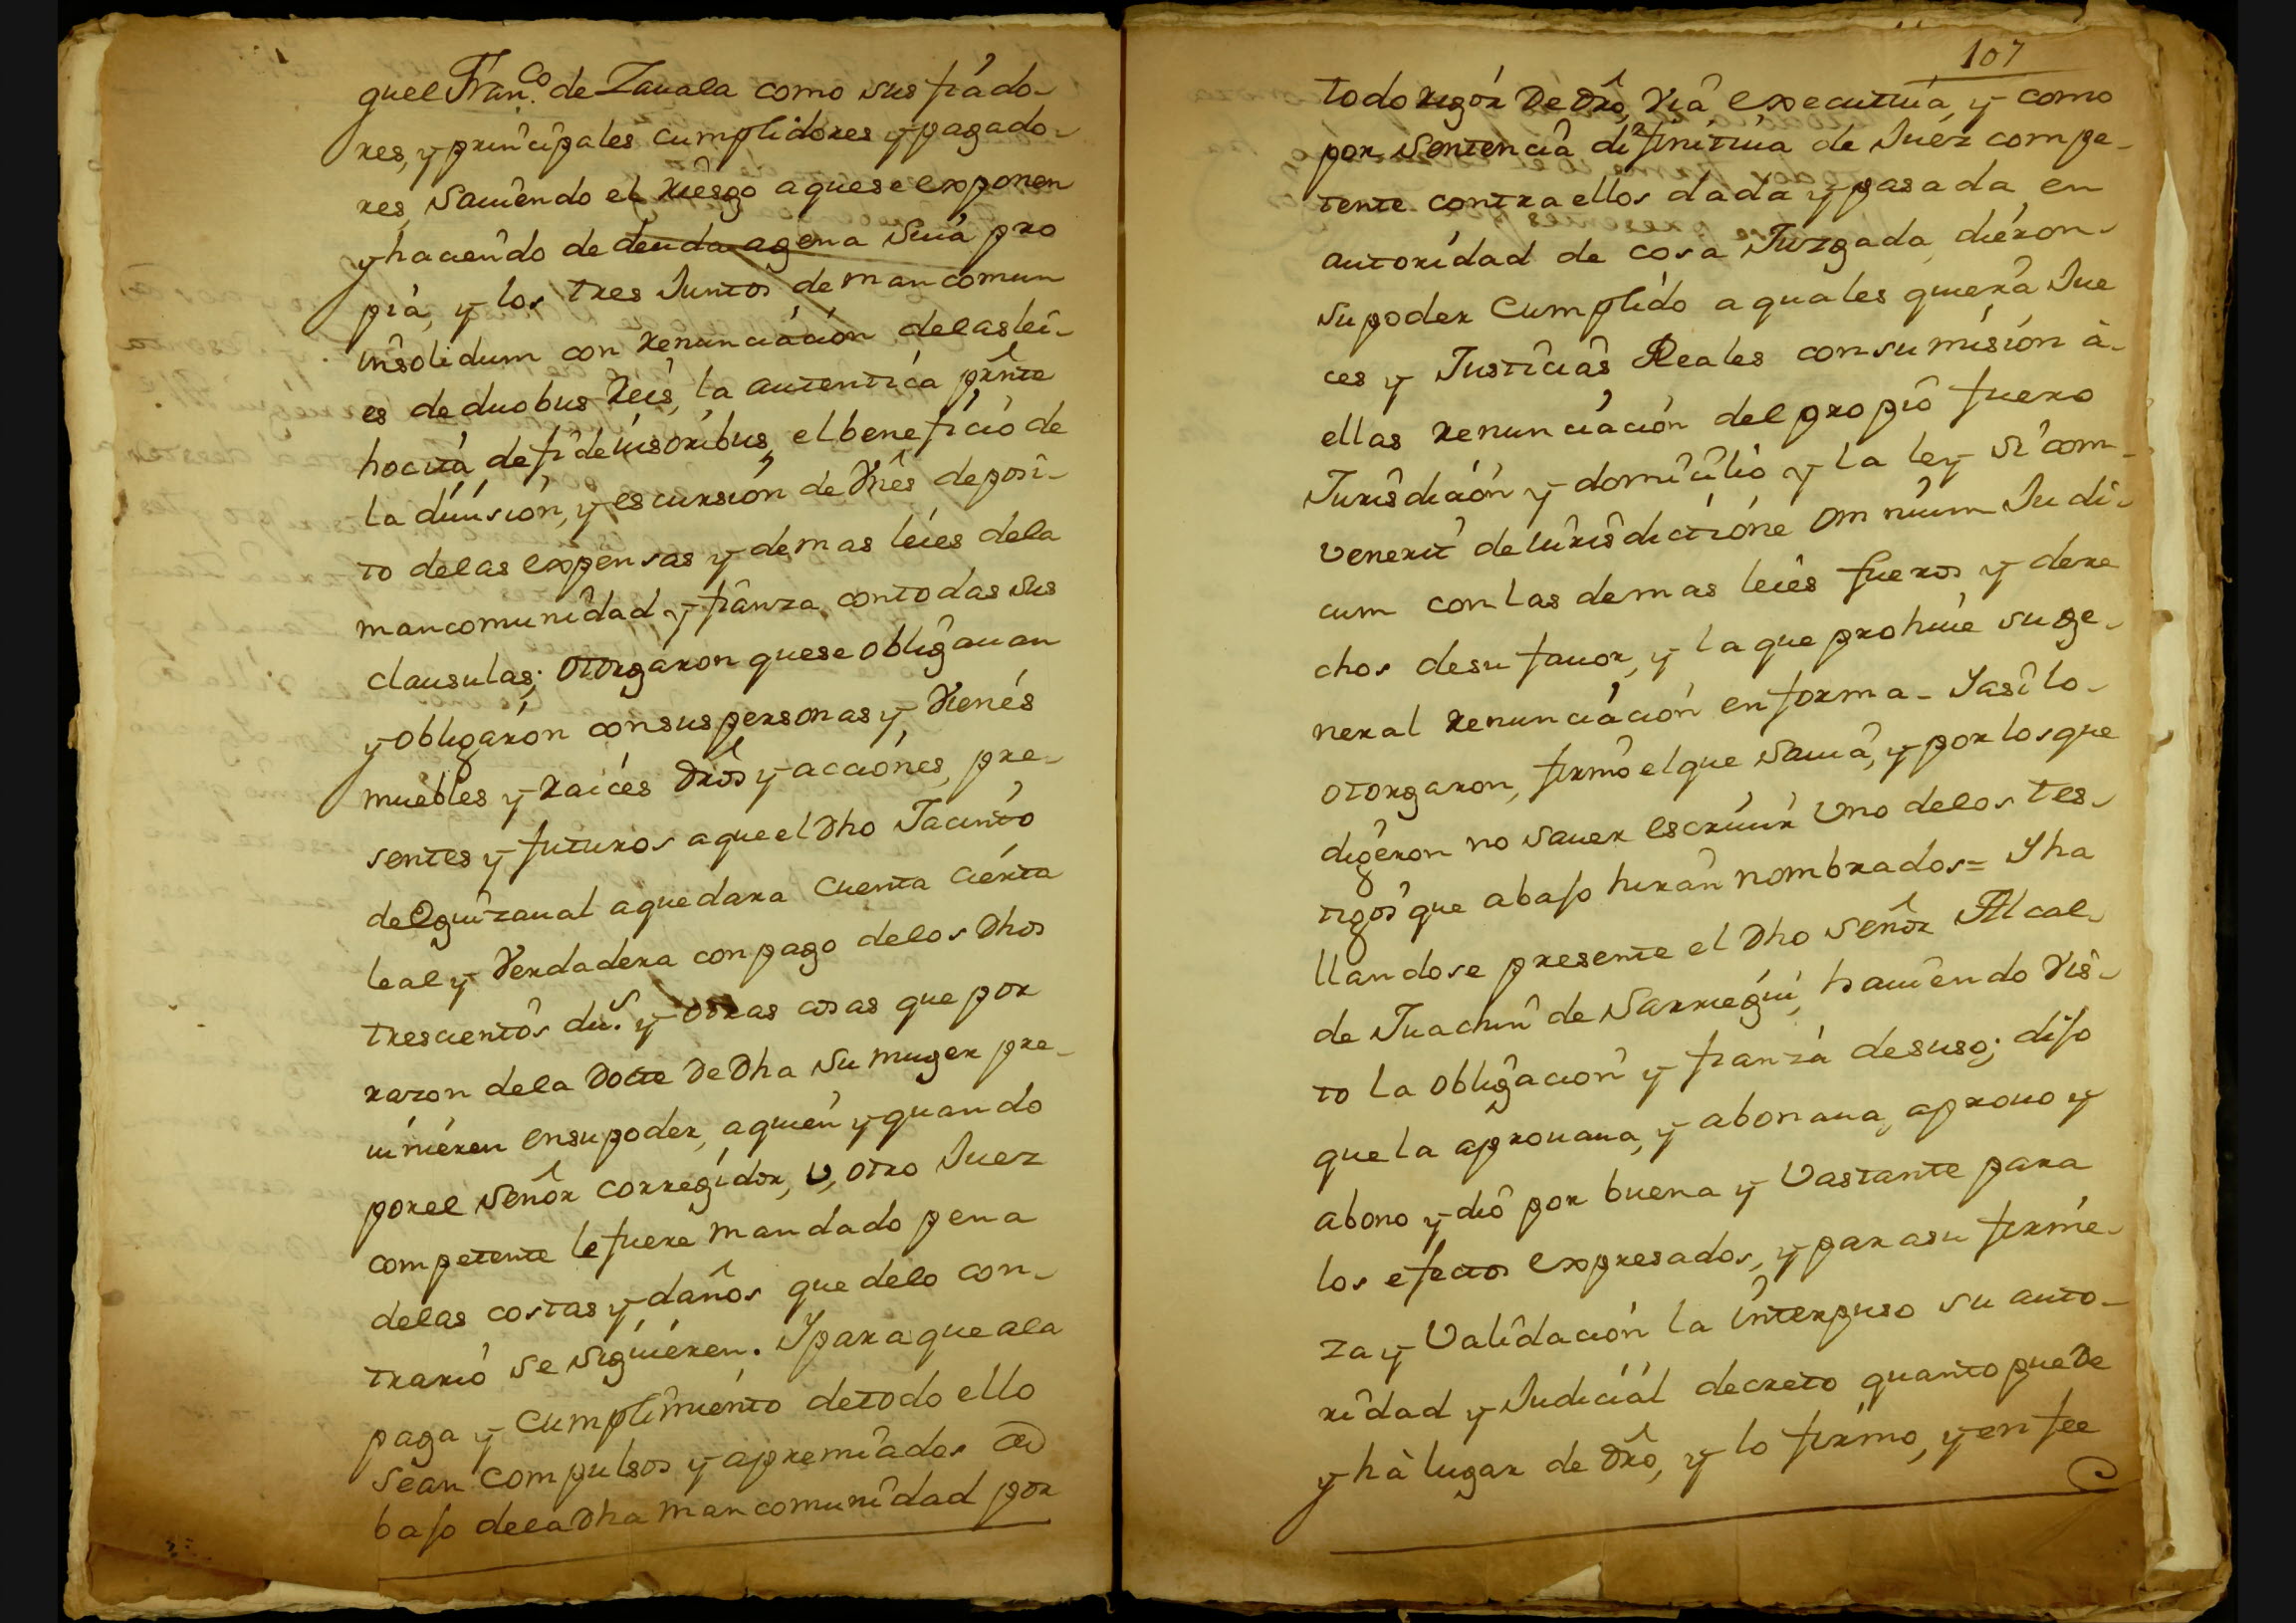 quel Fran.co de Zauala como sus fiado-
res, y principales cumplidores y pagado-
res, Sauiendo el Riesgo aquese exponen
y haciendo de deuda agena Suia pro
pia, y los tres Juntos de man comun
insolidum con renunciación delas lei-
es de duobus Reis, la autentica pñnte
hocita, defideiusoribus, el beneficio de
la diuisión, y escursión de Vnês deposi-
to delas expensas y demas leies dela
mancomunidad y fianza contodas sus
clausulas; otorgaron quese obligauan
y obligarón consus personas y Vienés
muebles y raicés drôs y acciónes, pre-
sentes y futuros aqueel dho Jacinto
de Eguizaual aquedara cuenta cierta
leal y Verdadera con pago delos dhos
trescientôs du.s y otras cosas que por
razon dela Dotte de Dha su muger pre-
uinieren ensupoder, aquién y quando
porel Señor corregidor, v, otro Juez
competente le fuere mandado pena
delas costas y daños que delo con-
trario se siguiéren. Y para que ala
paga y Cumplimiento detodo ello
sean compulsos y apremiados
bajo dela Dha mancomunidad por
107
todo rigór De drô, Viâ, executiua, y como
por Sentencia difinitiua de Juéz compe-
tente contra ellos dada y pasada en
autoridad de cosa Juzgada, diéron
supoder Cumplido a quales quiera Jue
ces y Justicias Reales consumisión à
ellas renunciación del propio fuero
Jurisdición y domicilio y la ley Si com-
venerit de iurisdictione omnium Judi-
cum con las demas leiês fueros y dere
chos desu fauor, y la que prohiue su ge-
neral renunciación en forma - Y asi lo
otorgaron, firmó el que Sauia, y por los que
digeron no Sauer escriuir Vno delos tes-
tigos que abajo hirân nombrados = Y ha
llandose presente el Dho Señor Alcal-
de Juachin de Sarriegui, hauiendo Vis-
to la obligación y fianza desuso; dijo
que la aprouaua, y abonaua, aprouo y
abono y dió por buena y Vastante para
los efectos expresados, y para su firme-
za y Validación la interpuso su auto-
ridad y Judiciál decreto quanto puede
y hà lugar de drô, y lo firmo, y en fee